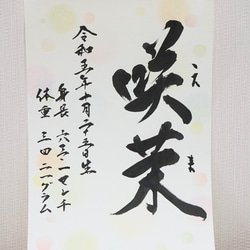 咲茉
え ま
令和五年十月二十五日生
身長 センチ
体重 三四二一グラム